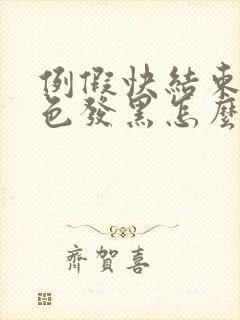 例假快結束
色發黑怎麼
齊賀喜